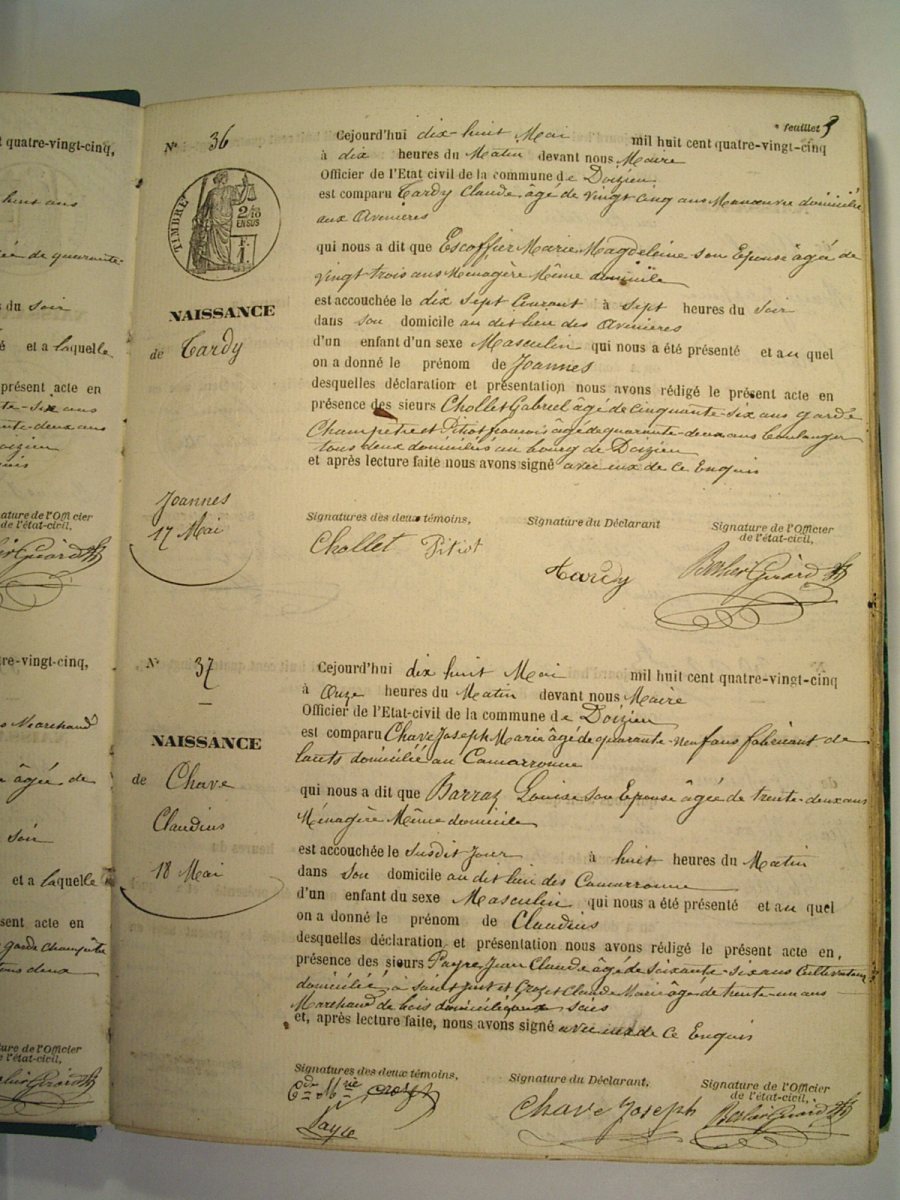 t quatre-vingt-cinq,
huit ans
ée de quarante
du soir
é et a laquelle
présent acte en
te-six ans
nte-deux ans
Doizieu
uis
ature de l'Officier
de l'état-civil,
re-vingt-cinq,
Marchand
âgée de
soir
et a laquelle
sent acte en
garde champêtre
tous deux
ure de l'Officier
e l'état-civil,
feuillet 9
N° 36
TIMBRE
2/10
EN SUS
NAISSANCE
de Tardy
Joannes
17 Mai
Cejourd'hui dix-huit Mai mil huit cent quatre-vingt-cinq
à dix heures du Matin devant nous Maire
Officier de l'Etat civil de la commune de Doizieu
est comparu Tardy Claude âgé de vingt cinq ans Manœuvre domicilié
aux Avenières
qui nous a dit que Escoffier Marie Magdeleine son Epouse âgée de
vingt trois ans Ménagère Même domicile
est accouchée le dix sept Courant à sept heures du Soir
dans son domicile au dit lieu des Avenières
d'un enfant d'un sexe Masculin qui nous a été présenté et au quel
on a donné le prénom de Joannes
desquelles déclaration et présentation nous avons rédigé le présent acte en
présence des sieurs Chollet Gabriel âgé de cinquante-six ans garde
Champêtre et Pitiot françois âgé de quarante-deux ans boulanger
tous deux domiciliés au bourg de Doizieu
et après lecture faite nous avons signé avec eux de ce Enquis
Signatures des deux témoins, Signature du Déclarant Signature de l'Officier
de l'état-civil,
Chollet Pitiot Tardy
N° 37
NAISSANCE
de Chave
Claudius
18 Mai
Cejourd'hui dix huit Mai mil huit cent quatre-vingt-cinq
à Onze heures du Matin devant nous Maire
Officier de l'Etat-civil de la commune de Doizieu
est comparu Chave Joseph Marie âgé de quarante-neuf ans fabricant de
lacets domicilié au Camarronne
qui nous a dit que Barraz Louise son Epouse âgée de trente-deux ans
Ménagère Même domicile
est accouchée le Susdit Jour à huit heures du Matin
dans son domicile au dit lieu des Camarronne
d'un enfant du sexe Masculin qui nous a été présenté et au quel
on a donné le prénom de Claudius
desquelles déclaration et présentation nous avons rédigé le présent acte en,
présence des sieurs Payre Jean Claude âgé de soixante-six ans Cultivateur
domicilié à saint just et Crozet Claude Marie âgé de trente-un ans
Marchand de bois domicilié aux Scies
et, après lecture faite, nous avons signé avec eux de ce Enquis
Signatures des deux témoins, Signature du Déclarant, Signature de l'Officier
de l'état-civil,
Cde Mie Crozet
Payre
Chave Joseph